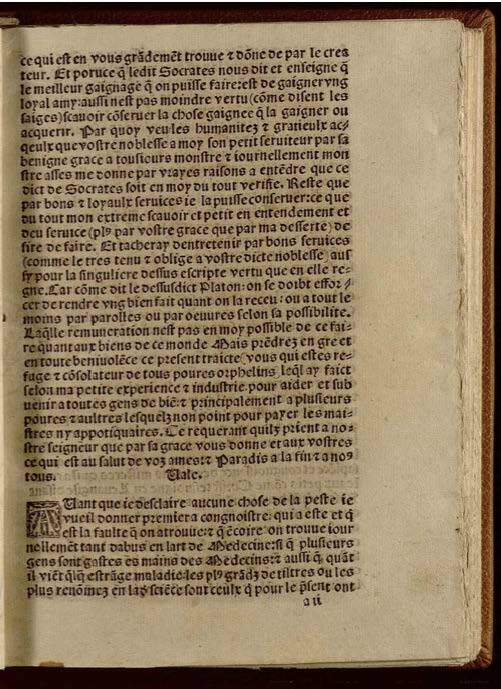 ce qui est en vous grãdemẽt trouue ⁊ dõne de par le crea
teur. Et poruce q̃ ledit Socrates nous dit et enseigne q̃
le meilleur gaignage q̃ on puisse faire: est de gaigner vng
loyal amy: aussi nest pas moindre vertu (cõme disent les
saiges) scauoir cõseruer la chose gaignee q̃ la gaigner ou
acquerir. Par quoy veu les humanitez ⁊ gratieulx ac-
qeulx que vostre noblesse a moy son petit seruiteur par sa
benigne grace a tousiours monstre ⁊ iournellement mon
stre asses me donne par vrayes raisons a entẽdre que ce
dict de Socrates soit en moy du tout verifie. Reste que
par bons ⁊ loyaulx seruices ie la puisse conseruer: ce que
du tout mon extreme scauoir et petit en entendement et
deu seruice (plꝰ par vostre grace que par ma desserte) de-
sire de faire. Et tacheray dentretenir par bons seruices
(comme le tres tenu ⁊ oblige a vostre dicte noblesse) aus
sy pour la singuliere dessus escripte vertu que en elle re-
gne. Car cõme dit le dessusdict Platon: on se doibt effor-
cer de rendre vng bien fait quant on la receu: ou a tout le
moins par parolles ou par oeuures selon sa possibilite.
Laq̃lle remuneration nest pas en moy possible de ce fai-
re quant aux biens de ce monde Mais prẽdrez en gre et
en toute beniuolẽce ce present traicte (vous qui estes re-
fuge ⁊ cõsolateur de tous poures orphelins) leq̃l ay faict
selon ma petite experience ⁊ industrie pour aider et sub
uenir a tout es gens de biẽ: ⁊ principalement a plusieurs
poures ⁊ aultres lesquelz non point pour payer les mai-
stres ny appotiquaires. Ce requerant quilz prient a no-
stre seigneur que par sa grace vous donne et aux vostres
ce qui est au salut de voz ames: ⁊ Paradis a la fin ⁊ a nos
tous. Uale.
AUant que ie desclaire aucune chose de la peste ie
vueil donner premier a congnoistre: qui a este et q̃
est la faulte q̃ on a trouue: ⁊ q̃ ẽcoire on trouue iour
nellemẽt tant dabus en lart de Medecine: si q̃ plusieurs
gens sont gastes es mains des Medecins: ⁊ aussi q̃ quãt
il viẽt q̃lq̃ estrãge maladie: les plꝰ grãdz de tiltres ou les
plus renõmez en lad sciẽce sont ceulx q̃ pour le p̃sent ont
a ii